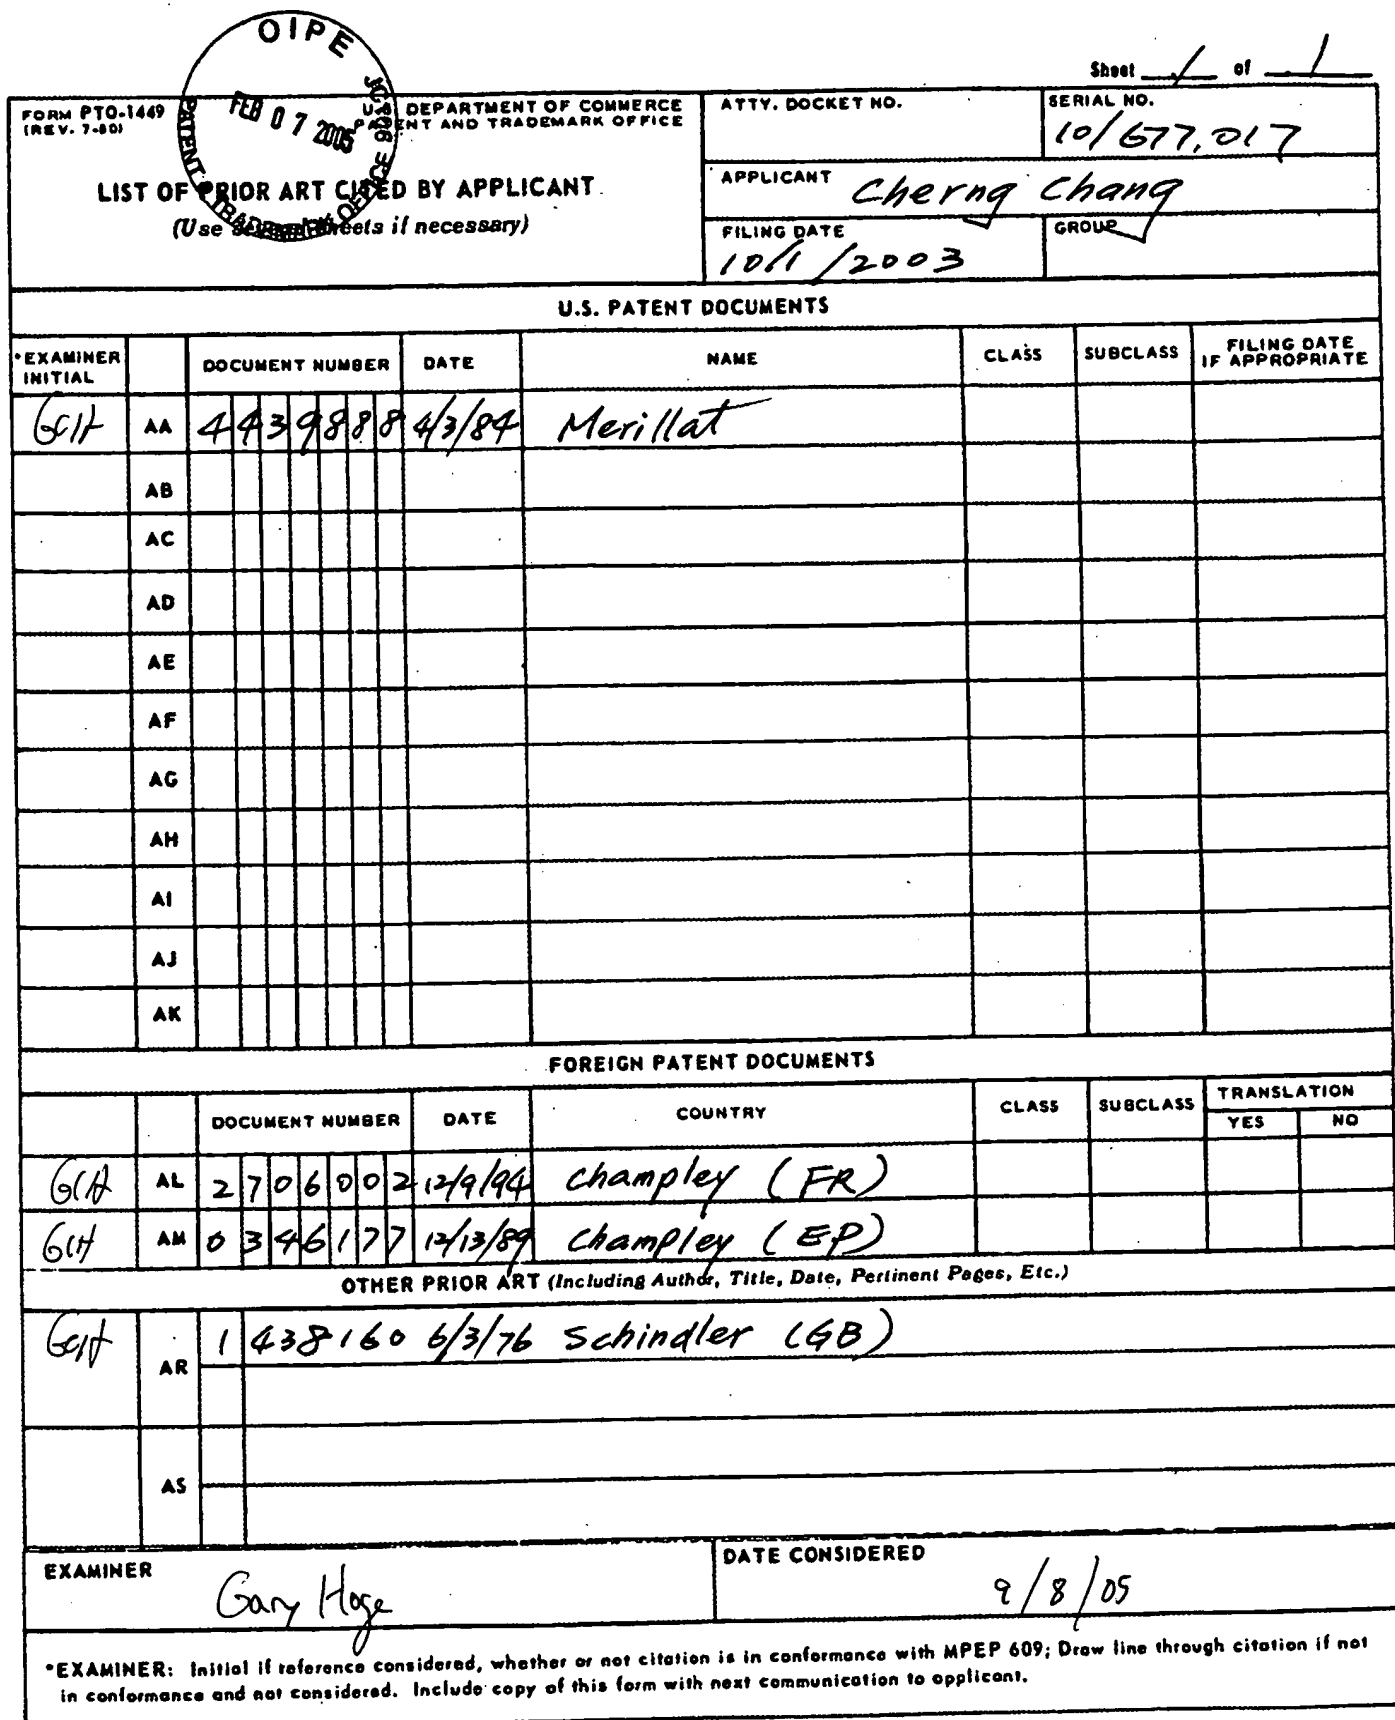 OIPE
FEB 07 2005
PATENT & TRADEMARK OFFICE
Sheet 1 of 1
FORM PTO-1449
(REV. 7-80)
U.S. DEPARTMENT OF COMMERCE
PATENT AND TRADEMARK OFFICE
LIST OF PRIOR ART CITED BY APPLICANT
(Use several sheets if necessary)
ATTY. DOCKET NO.
SERIAL NO.
10/677,017
APPLICANT Cherng Chang
FILING DATE
10/1/2003
GROUP
U.S. PATENT DOCUMENTS
*EXAMINER INITIAL DOCUMENT NUMBER DATE NAME CLASS SUBCLASS FILING DATE IF APPROPRIATE
GCH AA 4439888 4/3/84 Merillat
AB
AC
AD
AE
AF
AG
AH
AI
AJ
AK
FOREIGN PATENT DOCUMENTS
DOCUMENT NUMBER DATE COUNTRY CLASS SUBCLASS TRANSLATION
YES NO
GCH AL 2706002 12/9/94 Champley (FR)
GCH AM 0346177 12/13/89 Champley (EP)
OTHER PRIOR ART (Including Author, Title, Date, Pertinent Pages, Etc.)
GCH AR 1 438160 6/3/76 Schindler (GB)
AS
EXAMINER Gary Hoge
DATE CONSIDERED 9/8/05
*EXAMINER: Initial if reference considered, whether or not citation is in conformance with MPEP 609; Draw line through citation if not
in conformance and not considered. Include copy of this form with next communication to applicant.